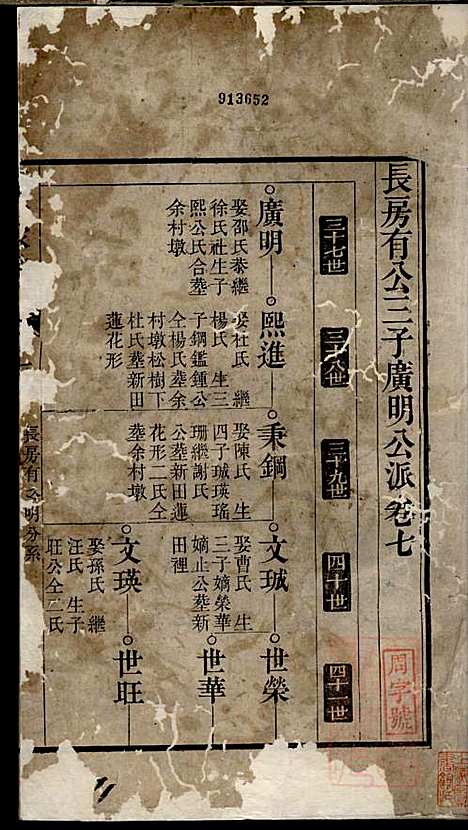 913652
長房有公三子廣明公派 卷七
三十七世
三十八世
三十九世
四十世
四十一世
廣明
娶邵氏恭繼
徐氏社生子
熙公氏合塟
余村墩
熙進
娶杜氏 繼
楊氏 生三
子鋼鑑鍾公
仝楊氏塟余
村墩松樹下
杜氏塟新田
蓮花形
秉鋼
娶陳氏 生
四子珹瑛瑤
珊繼謝氏
公塟新田蓮
花形二氏仝
塟余村墩
文珹
娶曹氏 生
三子嫡榮華
嫡止公塟新
田裡
世榮
世華
文瑛
娶孫氏 繼
汪氏 生子
旺公仝二氏
世旺
長房有公明分系
周字號